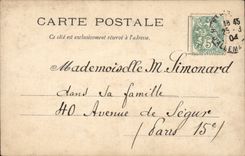 CARTE POSTALE
Ce côté est exclusivement réservé à l'adresse.
18 45
25
04
5
Mademoiselle M. Simonard
dans sa famille
40 Avenue de Ségur
(Paris 15e)